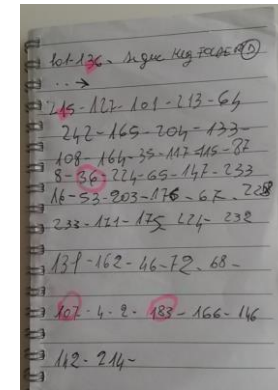 lot 136
215-127-101-213-64
242-165-204-133-
108-164-35-117-115-87
8-36-224-65-147-233
16-53-203-176-67-228
233-171-175 224-232
131-162-46-72-68-
107-4-2-183-166-146
142-214-